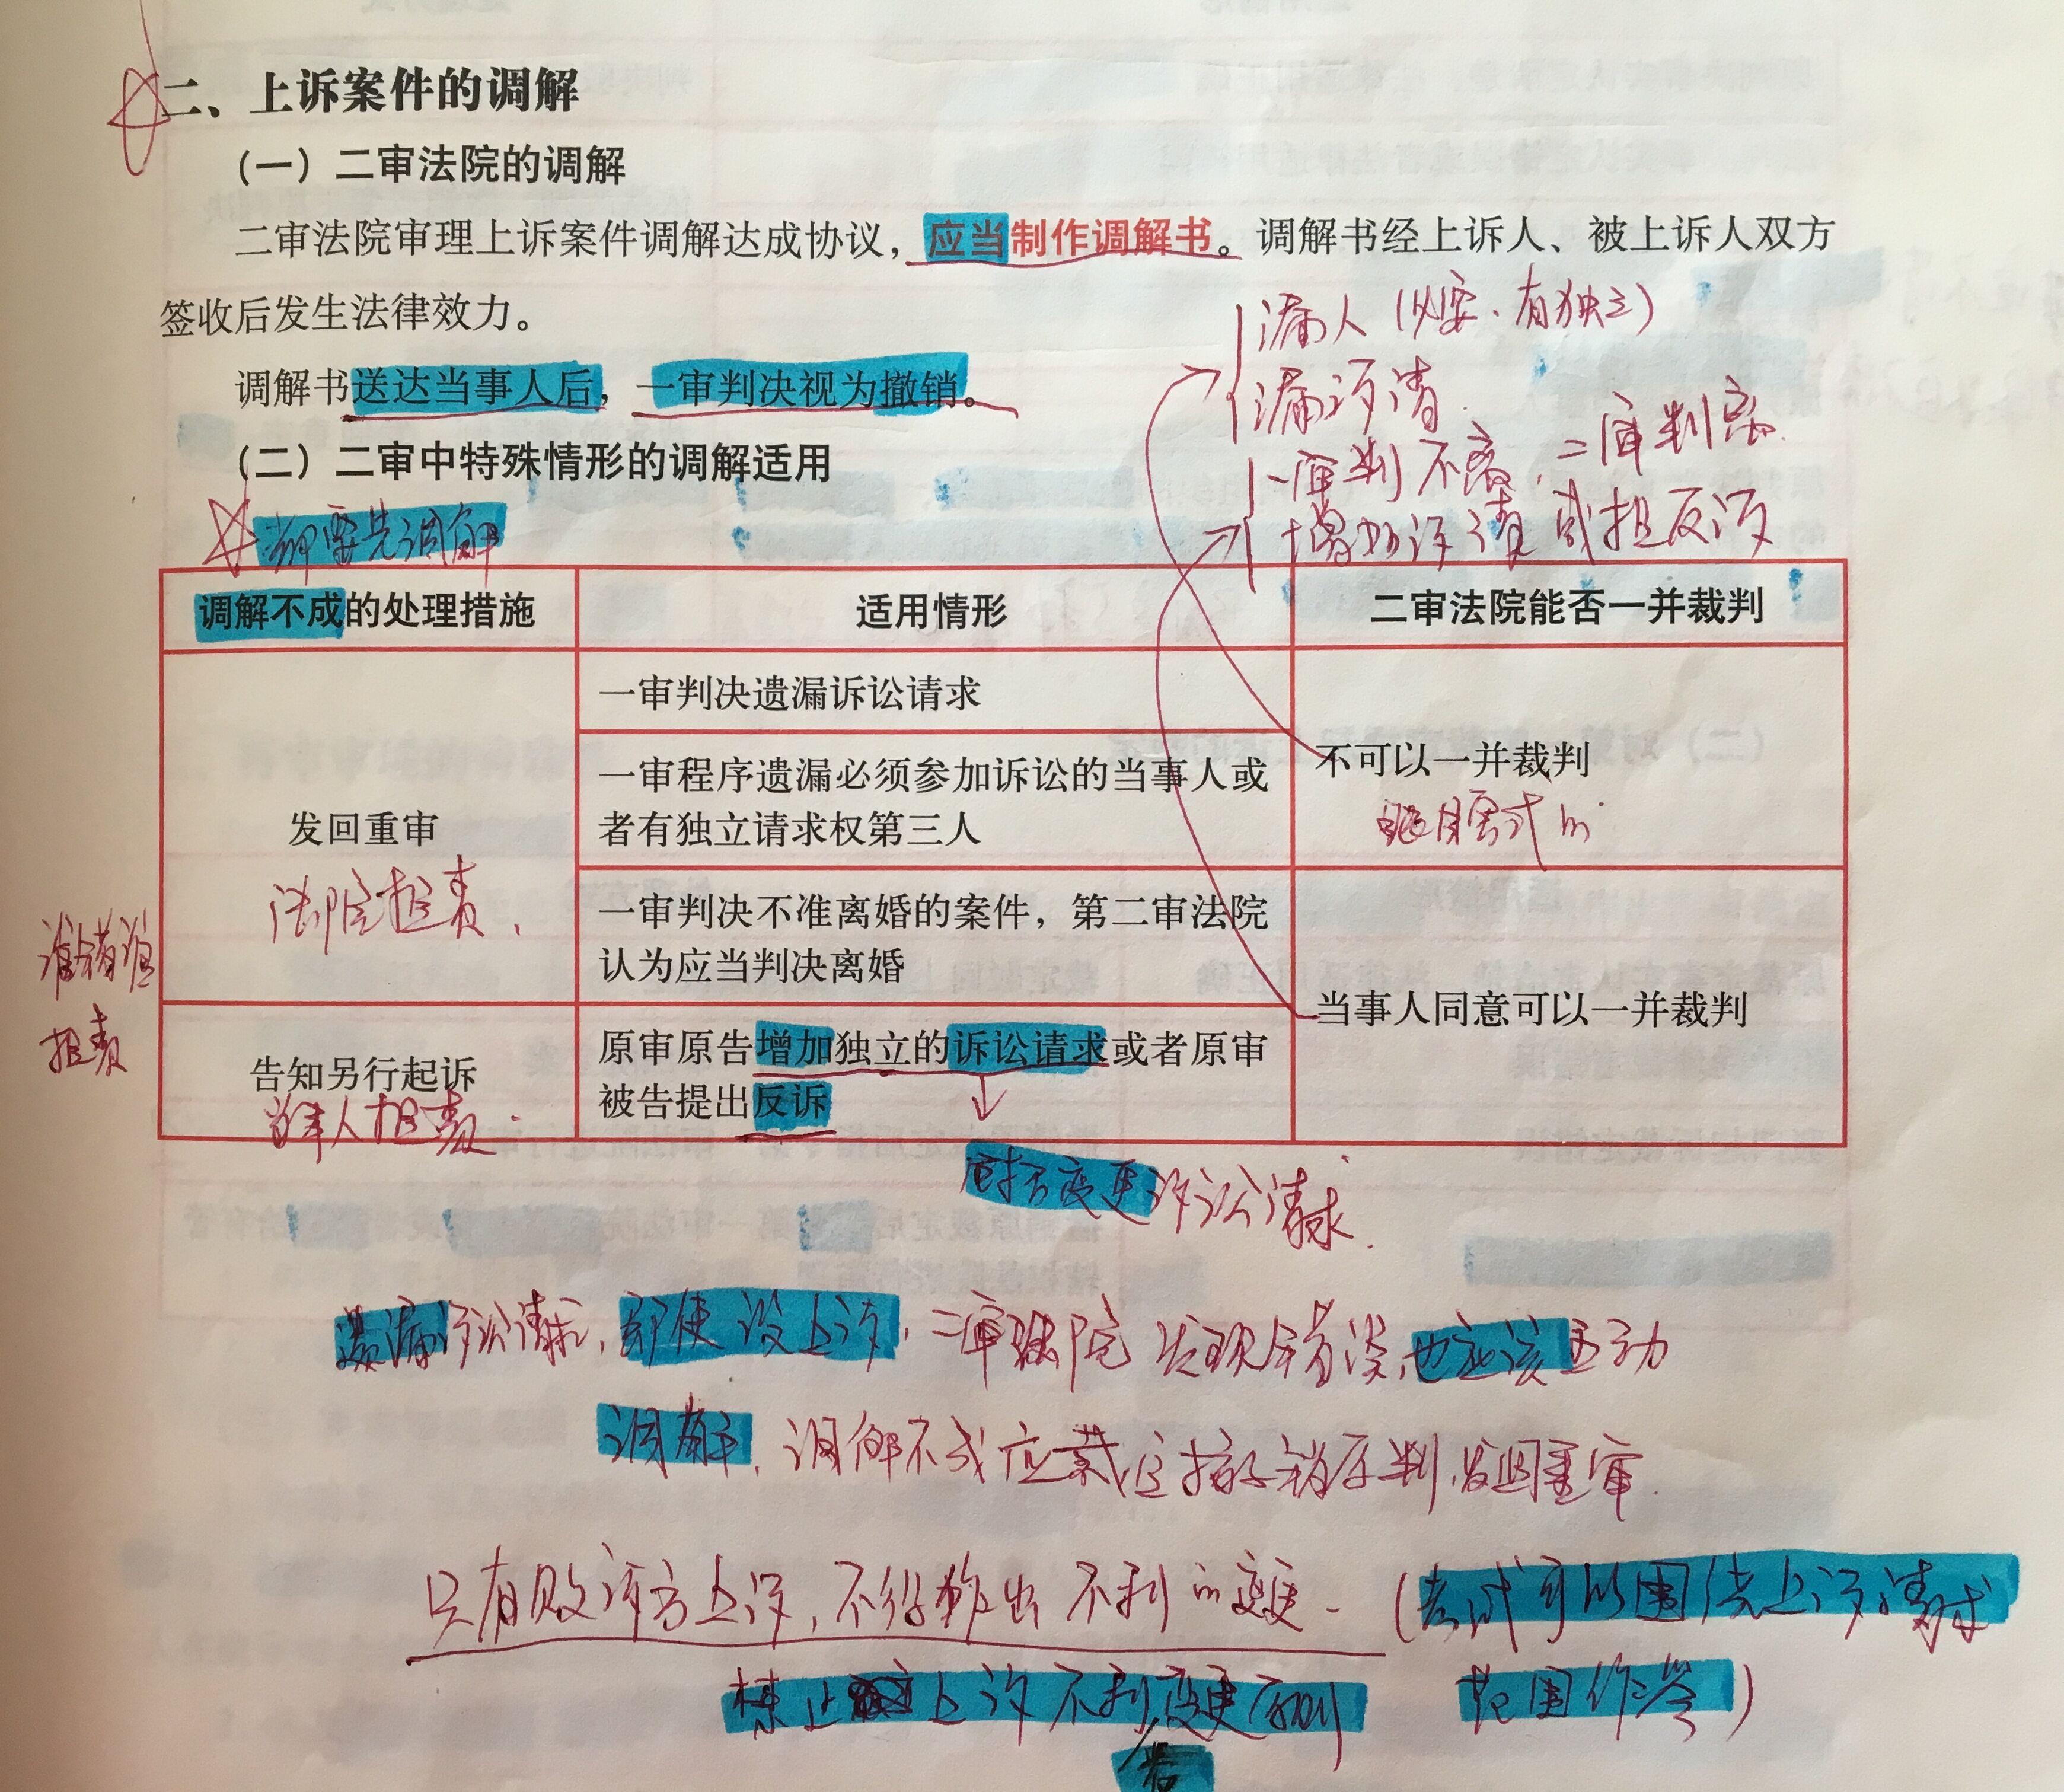 二、上诉案件的调解
（一）二审法院的调解
二审法院审理上诉案件调解达成协议，应当制作调解书。调解书经上诉人、被上诉人双方
签收后发生法律效力。
漏人（必要、有独立）
调解书送达当事人后，一审判决视为撤销。
漏诉请
（二）二审中特殊情形的调解适用
一审判不离，二审判离
增加诉请或提反诉
都要先调解
调解不成的处理措施
适用情形
二审法院能否一并裁判
发回重审
法院担责
一审判决遗漏诉讼请求
一审程序遗漏必须参加诉讼的当事人或
者有独立请求权第三人
不可以一并裁判
一审判决不准离婚的案件，第二审法院
认为应当判决离婚
当事人同意可以一并裁判
谁错谁
担责
告知另行起诉
当事人担责
原审原告增加独立的诉讼请求或者原审
被告提出反诉
包括变更诉讼请求
遗漏诉讼请求，即使没上诉，二审法院发现错误，也应该主动
调解，调解不成应裁定撤销原判，发回重审
只有败诉方上诉，不得作出不利的变更（考试可以围绕上诉请求
范围作答）
禁止上诉不利变更原则